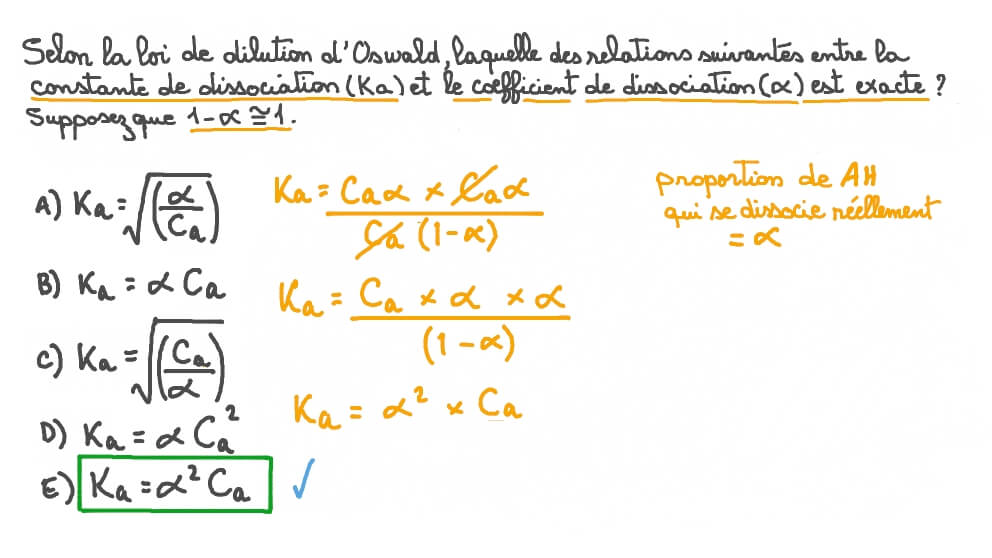 Selon la loi de dilution d'Oswald, laquelle des relations suivantes entre la
constante de dissociation (Ka) et le coefficient de dissociation (α) est exacte ?
Supposez que 1-α ≅ 1.
A) Ka = √(α/Ca)
B) Ka = α Ca
C) Ka = √(Ca/α)
D) Ka = α Ca²
E) Ka = α² Ca ✓
Ka = Caα × Caα / Ca (1-α)
Ka = Ca × α × α / (1-α)
Ka = α² × Ca
proportion de AH
qui se dissocie réellement
= α